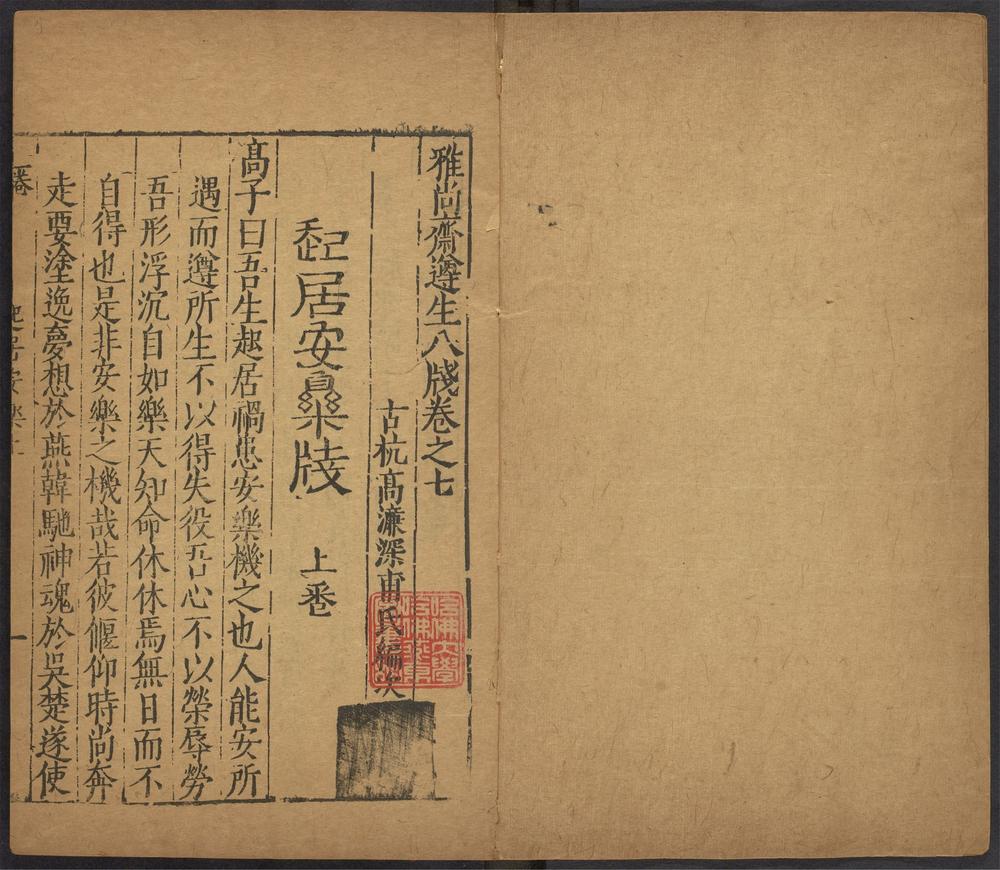 雅尚齋遵生八牋卷之七
古杭高濂深甫氏編次
起居安樂牋 上卷
高子曰吾生起居禍患安樂機之也人能安所
遇而遵所生不以得失役吾心不以榮辱勞
吾形浮沉自如樂天知命休休焉無日而不
自得也是非安樂之機哉若彼偃仰時尚奔
走要塗逸夢想於燕韓馳神魂於吳楚遂使
起居安樂上
一